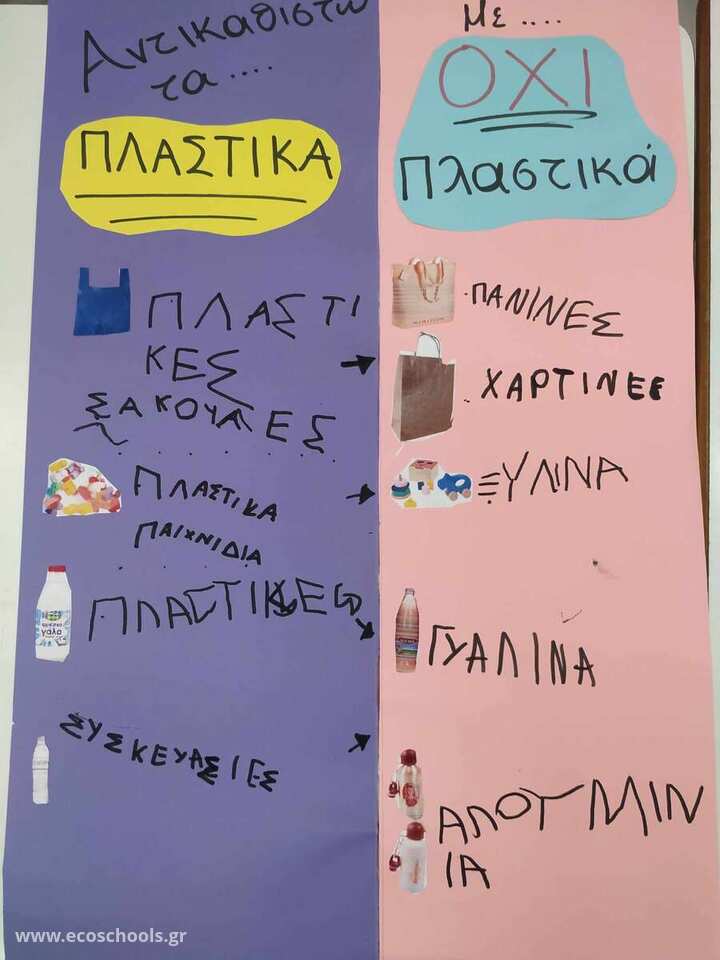 Αντικαθιστώ
τα ....
ΠΛΑΣΤΙΚΑ
ΠΛΑΣΤΙ
ΚΕΣ
ΣΑΚΟΥΛΕΣ
ΠΛΑΣΤΙΚΑ
ΠΑΙΧΝΙΔΙΑ
γάλα
ΠΛΑΣΤΙΚΕΣ
ΣΥΣΚΕΥΑΣΙΕΣ
Με ....
ΟΧΙ
Πλαστικά
ΠΑΝΙΝΕΣ
ΧΑΡΤΙΝΕΣ
ΞΥΛΙΝΑ
ΓΥΑΛΙΝΑ
ΑΛΟΥΜΙΝ
ΙΑ
www.ecoschools.gr